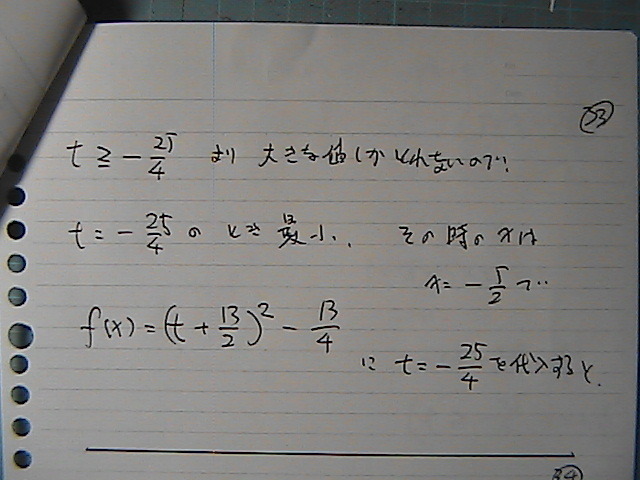 33
t ≧ - 25/4 より 大きな値しかとれないので、
t = - 25/4 のとき最小、 その時のxは
x = - 5/2 で…
f(x) = (t + 13/2)² - 13/4
に t = - 25/4 を代入すると、
34